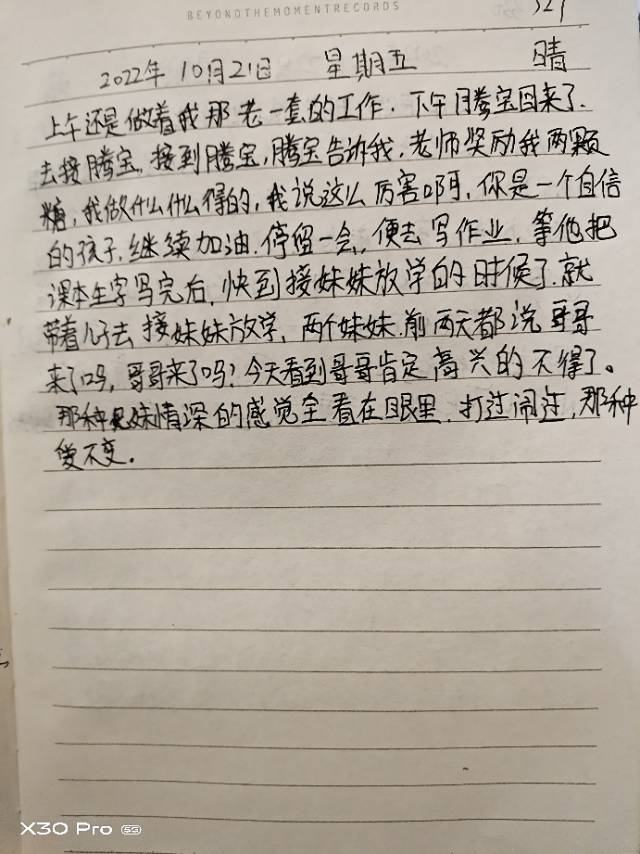 BEYONDTHEMOMENTRECORDS
2022年 10月21日 星期五 晴
上午还是做着我那老一套的工作.下午腾宝回来了.
去接腾宝,接到腾宝,腾宝告诉我,老师奖励我两颗
糖,我做什么什么得的,我说这么厉害啊,你是一个自信
的孩子.继续加油.停留一会,便去写作业,等他把
课本生字写完后,快到接妹妹放学的时候了.就
带着儿子去接妹妹放学,两个妹妹.前两天都说哥哥
来了吗,哥哥来了吗?今天看到哥哥肯定高兴的不得了。
那种兄妹情深的感觉全看在眼里.打过闹过,那种
爱不变.
X30 Pro 5G